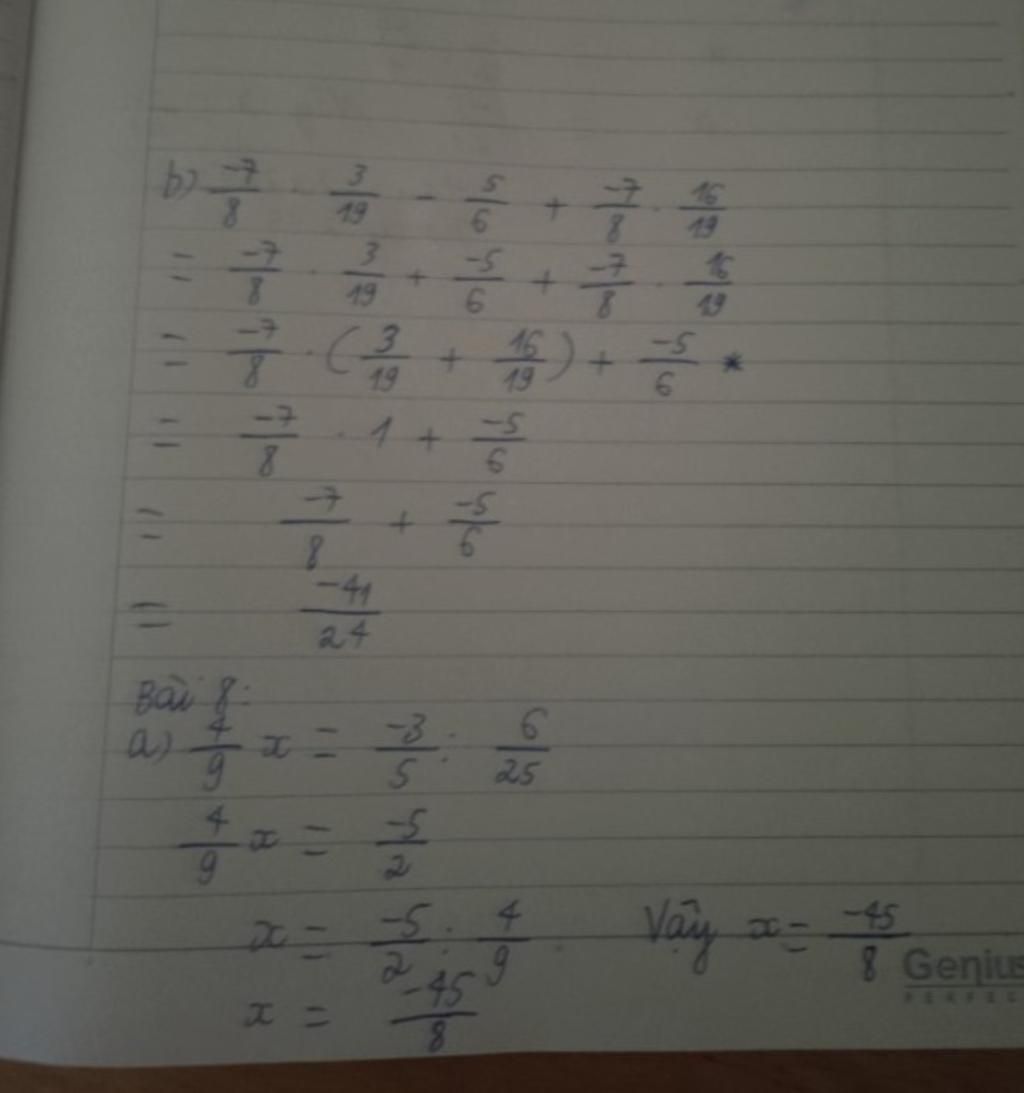 b) -7/8 . 3/19 - 5/6 + -7/8 . 16/19
= -7/8 . 3/19 + -5/6 + -7/8 . 16/19
= -7/8 . (3/19 + 16/19) + -5/6 *
= -7/8 . 1 + -5/6
= -7/8 + -5/6
= -41/24
Bài 8:
a) 4/9 x = -3/5 : 6/25
4/9 x = -5/2
x = -5/2 : 4/9 . Vậy x = -45/8
x = -45/8
Genius
PERFEC